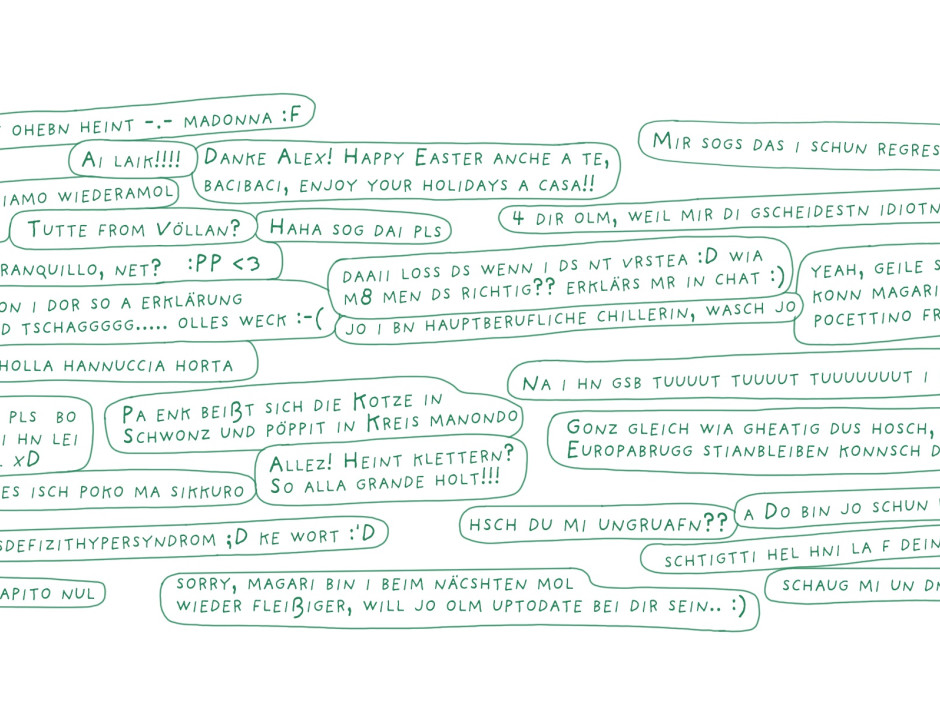 OHEBN HEINT -.- MADONNA :F
AI LAIK!!!!
DANKE ALEX! HAPPY EASTER ANCHE A TE,
BACIBACI, ENJOY YOUR HOLIDAYS A CASA!!
MIR SOGS DAS I SCHUN REGRES
IAMO WIEDERAMOL
TUTTE FROM VÖLLAN?
HAHA SOG DAI PLS
4 DIR OLM, WEIL MIR DI GSCHEIDESTN IDIOTN
RANQUILLO, NET? :PP <3
DAAII LOSS DS WENN I DS NT VRSTEA :D WIA
M8 MEN DS RICHTIG?? ERKLÄRS MR IN CHAT :)
YEAH, GEILE S
KONN MAGARI
POCETTINO FR
ON I DOR SO A ERKLÄRUNG
D TSCHAGGGGG..... OLLES WECK :-(
JO I BN HAUPTBERUFLICHE CHILLERIN, WASCH JO
HOLLA HANNUCCIA HORTA
NA I HN GSB TUUUUT TUUUUT TUUUUUUUT I
PLS BO
I HN LEI
. XD
PA ENK BEIßT SICH DIE KOTZE IN
SCHWONZ UND PÖPPIT IN KREIS MANONDO
GONZ GLEICH WIA GHEATIG DUS HOSCH,
EUROPABRUGG STIANBLEIBEN KONNSCH D
ALLEZ! HEINT KLETTERN?
SO ALLA GRANDE HOLT!!!
ES ISCH POKO MA SIKKURO
HSCH DU MI UNGRUAFN??
A DO BIN JO SCHUN
SDEFIZITHYPERSYNDROM ;D KE WORT :'D
SCHTIGTTI HEL HNI LA F DEIN
APITO NUL
SORRY, MAGARI BIN I BEIM NÄCSHTEN MOL
WIEDER FLEIßIGER, WILL JO OLM UPTODATE BEI DIR SEIN.. :)
SCHAUG MI UN